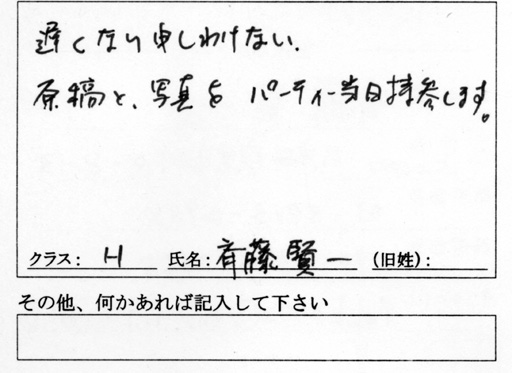 遅くなり申しわけない.
原稿と、写真を パーティー当日持参します。
クラス： H 氏名：斉藤賢一 （旧姓）：
その他、何かあれば記入して下さい